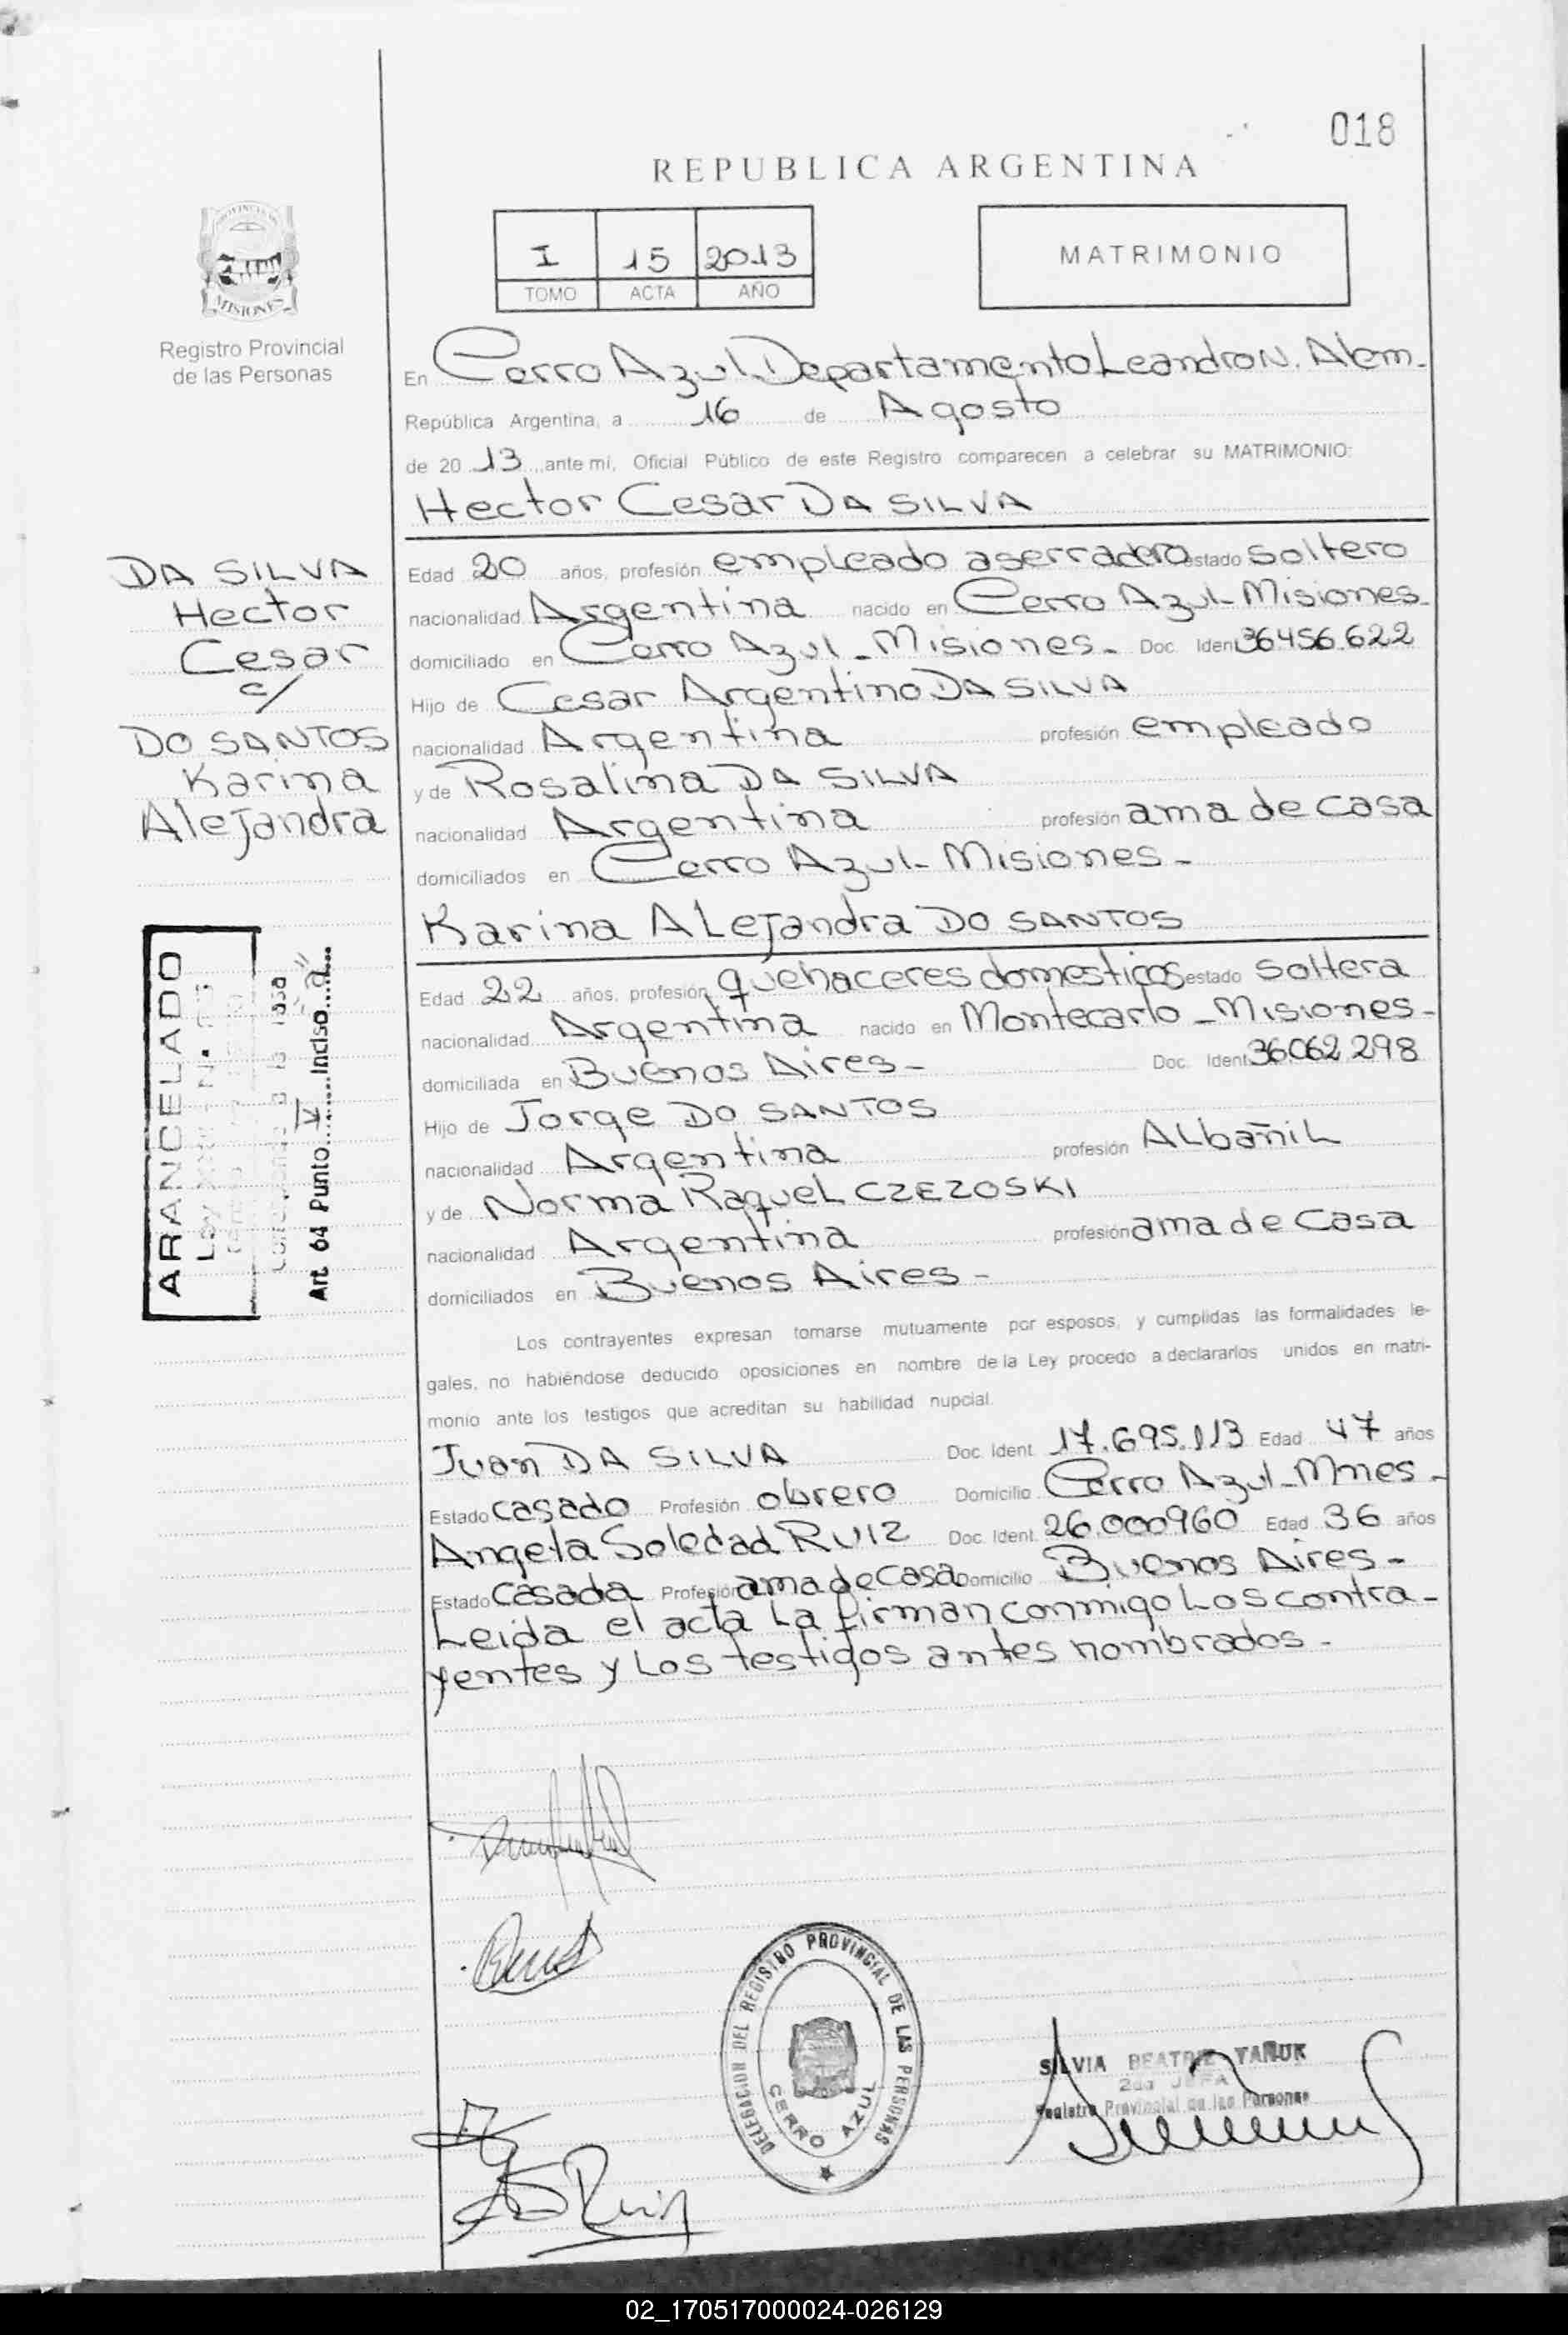 018
REPUBLICA ARGENTINA
PROVINCIA DE
MISIONES
Registro Provincial
de las Personas
I 15 2013
TOMO ACTA AÑO
MATRIMONIO
En Cerro Azul Departamento Leandro N. Alem-
República Argentina, a 16 de Agosto
de 20 13 ante mí, Oficial Público de este Registro comparecen a celebrar su MATRIMONIO:
Hector Cesar DA SILVA
DA SILVA
Hector
Cesar
c/
DO SANTOS
Karina
Alejandra
Edad 20 años, profesión empleado aserradero estado soltero
nacionalidad Argentina nacido en Cerro Azul-Misiones-
domiciliado en Cerro Azul-Misiones- Doc. Ident 36456.622
Hijo de Cesar Argentino DA SILVA
nacionalidad Argentina profesión empleado
y de Rosalina DA SILVA
nacionalidad Argentina profesión ama de casa
domiciliados en Cerro Azul-Misiones-
Karina ALejandra DO SANTOS
Edad 22 años, profesión quehaceres domesticos estado soltera
nacionalidad Argentina nacido en Montecarlo-Misiones-
domiciliada en Buenos Aires- Doc. Ident 36.062.298
Hijo de Jorge DO SANTOS
nacionalidad Argentina profesión ALbañiL
y de Norma RaqueL CZEZOSKI
nacionalidad Argentina profesión ama de casa
domiciliados en Buenos Aires-
ARANCELADO
Art. 64 Punto IV Inciso "a"
Los contrayentes expresan tomarse mutuamente por esposos, y cumplidas las formalidades le-
gales, no habiéndose deducido oposiciones en nombre de la Ley procedo a declararlos unidos en matri-
monio ante los testigos que acreditan su habilidad nupcial.
Juan DA SILVA Doc. Ident. 17.695.113 Edad 47 años
Estado casado Profesión obrero Domicilio Cerro Azul-Mnes-
Angela Soledad RUIZ Doc. Ident. 26.000960 Edad 36 años
Estado casada Profesión ama de casa Domicilio Buenos Aires-
Leida el acta La firman conmigo Los contra-
yentes y Los testigos antes nombrados-
DELEGACION DEL REGISTRO PROVINCIAL DE LAS PERSONAS
CERRO AZUL
SILVIA BEATRIZ TAÑUK
2da JEFA
Registro Provincial de las Personas
02_170517000024-026129